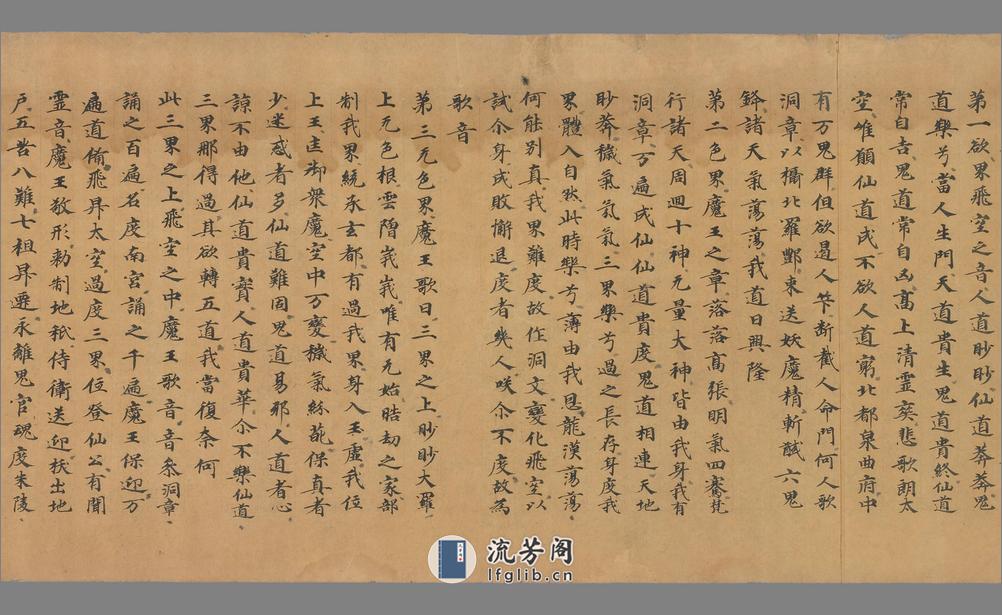 第一欲界飛空之音人道眇眇仙道莽莽鬼
道樂兮當人生門天道貴生鬼道貴終仙道
常自吉鬼道常自凶高上清靈美悲歌朗太
空唯願仙道成不欲人道窮北都泉曲府中
有万鬼群但欲遏人筭斷截人命門何人歌
洞章以攝北羅酆束送妖魔精斬馘六鬼
鋒諸天氣蕩蕩我道日興隆
第二色界魔王之章落落高張明氣四騫梵
行諸天周迴十神无量大神皆由我身我有
洞章万遍成仙仙道貴度鬼道相連天地
眇莽穢氣氣氣三界樂兮過之長存身度我
界體入自然此時樂兮薄由我恩龍漢蕩蕩
何能別真我界難度故作洞文變化飛空以
試尒身成敗懈退度者幾人咲尒不度故為
歌音
第三无色界魔王歌曰三界之上眇眇大羅
上无色根雲層峩峩唯有元始晧劫之家部
制我界統承玄都有過我界身入玉虛我位
上王匡御衆魔空中万變穢氣紛葩保真者
少迷惑者多仙道難固鬼道易邪人道者心
諒不由他仙道貴實人道貴華尒不樂仙道
三界那得過其欲轉五道我當復奈何
此三界之上飛空之中魔王歌音音參洞章
誦之百遍名度南宮誦之千遍魔王保迎万
遍道備飛昇太空過度三界位登仙公有聞
靈音魔王敬形勑制地祇侍衛送迎拔出地
戶五苦八難七祖昇遷永離鬼官魂度朱陵
流芳阁
lfglib.cn